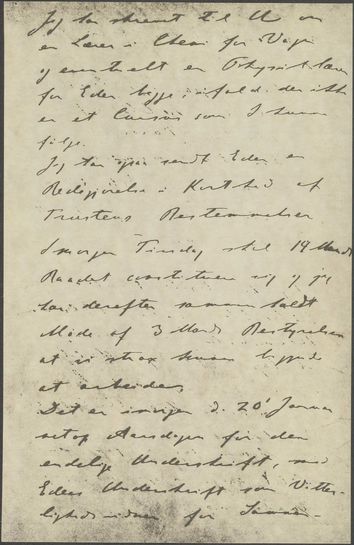 Jeg har skrevet til U om
en Lærer i Chemi for Vagn
og eventuelt en Physik lærer
for Eder begge i fald der ikke
er et Cursus som I kunne
følge.
Jeg har ogsaa sendt Eder en
Redegjørelse i Korthed af
Trustens Bestemmelser
I morgen Tirsdag skal 14 Mands
Raadet constituere sig og jeg
har derefter sammenkaldt
Møde af 3 Mands Bestyrelsen
at vi strax kunne begynde
at arbeide.
Det er imorgen d. 20' Januar
netop Aarsdagen for den
endelige Underskrift, med
Eders Underskrift som Vitter-
ligheds vidner for